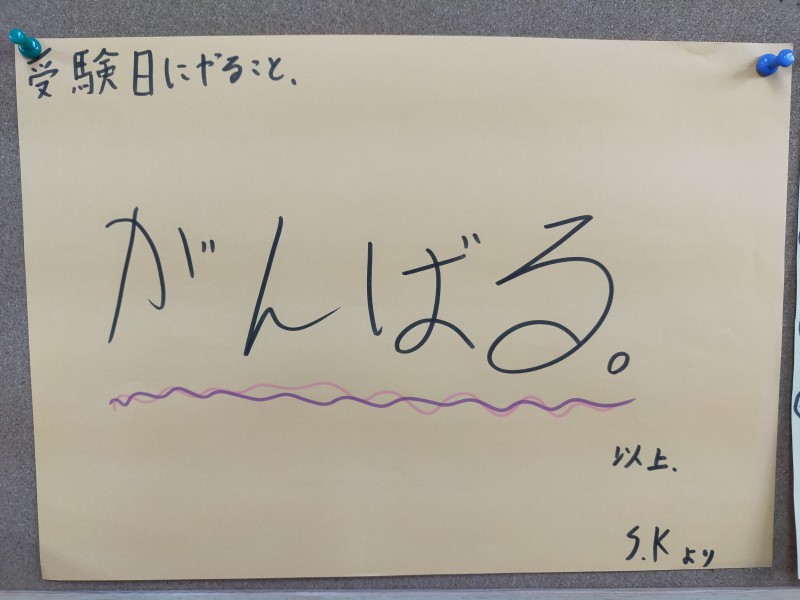 受験日にやること、
がんばる。
以上.
S.Kより